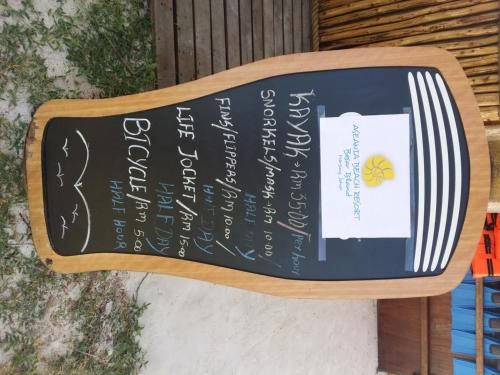 ACEANIA BEACH RESORT
Besar Island
Mersing, Johor
KAYAK → RM 35.00/Per hour
SNORKELS/MASK → RM 10.00/
HALF DAY
FINS/FLIPPERS/RM 10.00/
HALF DAY
LIFE JOCKET/RM 15.00
HALF DAY
BICYCLE/RM 5.00
HALF HOUR